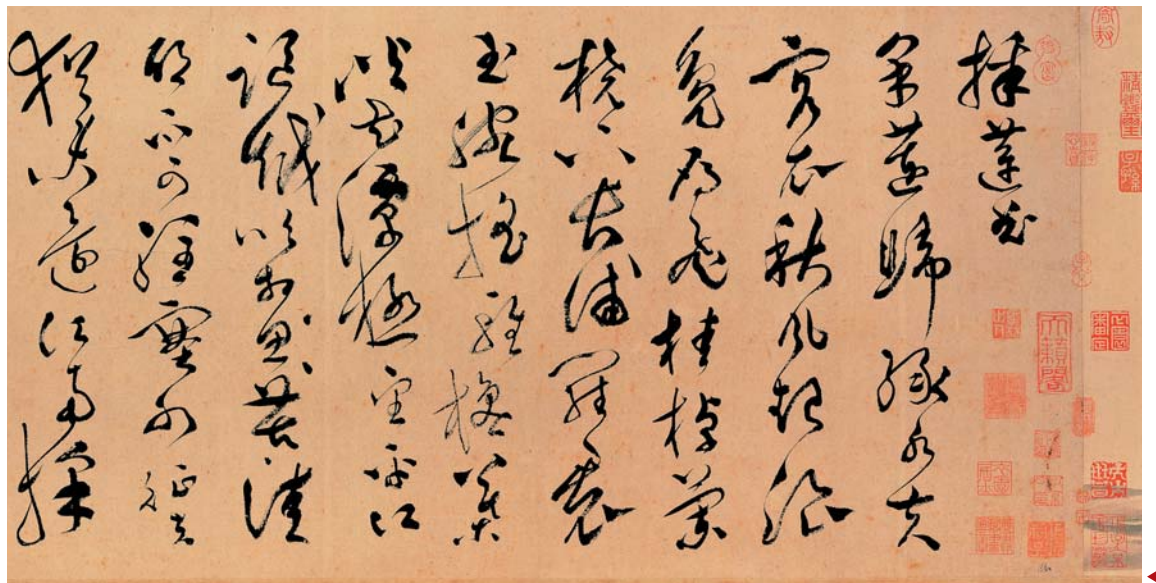 採蓮曲
采蓮歸綠水芙
蓉衣秋風起浪
鳧雁飛桂棹蘭
橈下長浦羅裙
玉腕搖輕櫓葉
嶼花潭極望平江
謳越吹相思苦佳
期不可駐塞外征夫
猶未還江南採
天籟閣